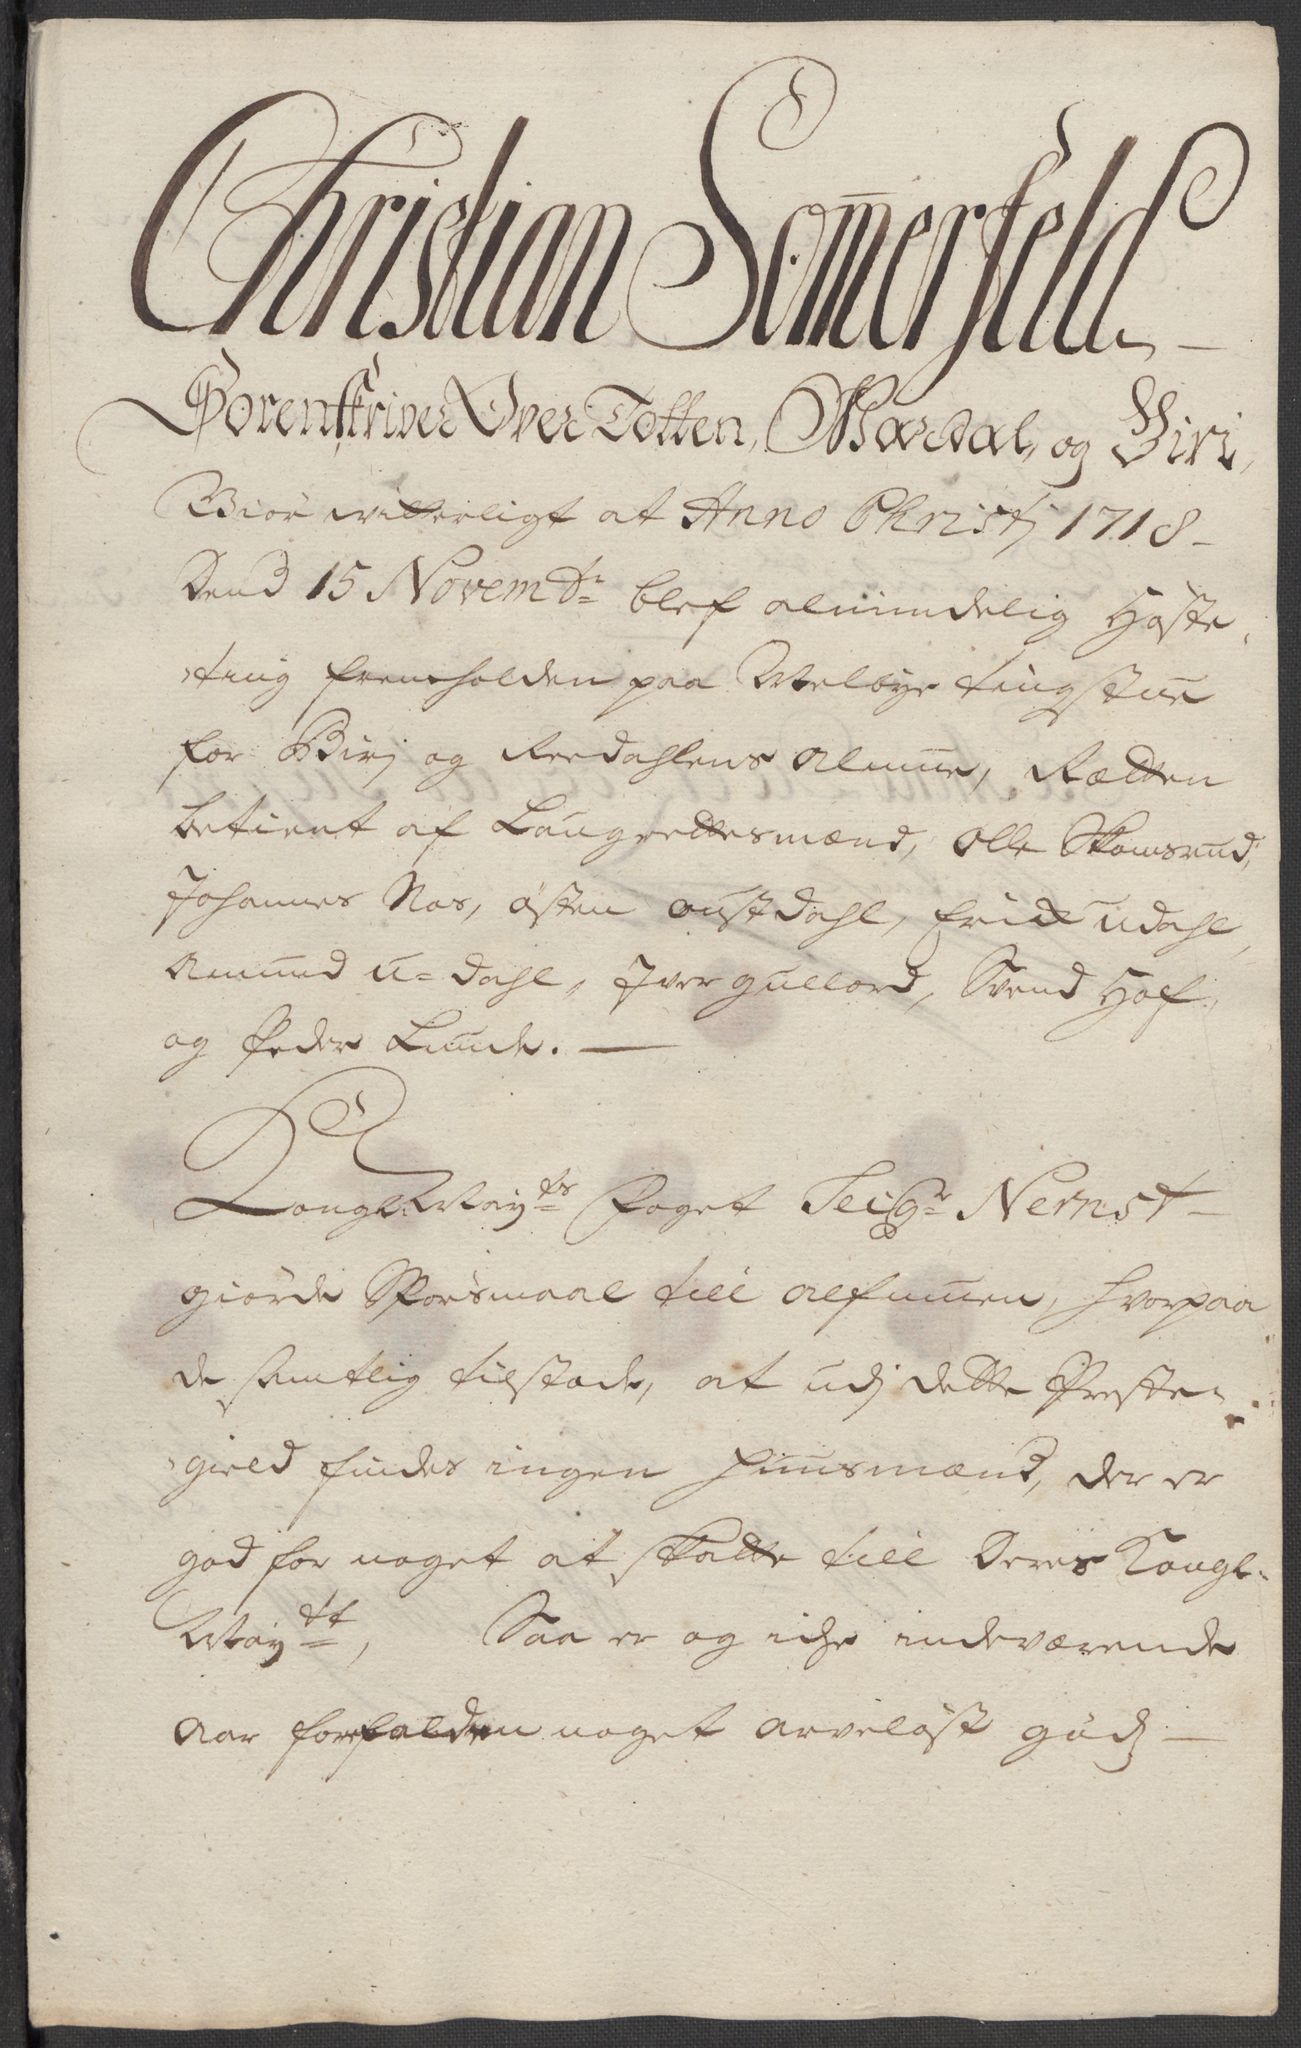 Christian Som̄erfeld
Sorenskriver Over Totten, Wardal, og Birj,
Giör witterligt at Anno Christj 1718
Dend 15 Novembr blef almindelig Høste
ting fremholden paa Melbye tingstue
for Birj og Reedahlens Almue, Rætten
betient af Laugrettesmænd, Olle Skomsrud,
Johannes Næs, østen oustdahl, Erick udahl,
Amund u-dahl, Iver gullord, Svend Hof,
og Peder Lunde.
Kongl. May:ts Foget Seigr Nernst
giorde Sporsmaal till Almuen, hvorpaa
de samtlig tilstode, at udj dette Preste
gield findes ingen huusmænd, der er
god for noget at skatte till Deris Kongl.
Maytt, Saa er og iche indeværende
Aar forfalden noget arveløst gods